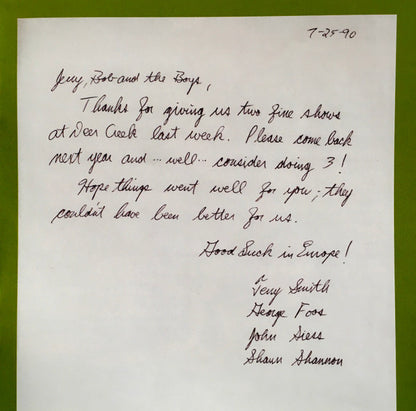 7-25-90
Jerry, Bob and the Boys,
Thanks for giving us two fine shows
at Deer Creek last week. Please come back
next year and ... well ... consider doing 3!
Hope things went well for you; they
couldn't have been better for us.
Good Luck in Europe!
Terry Smith
George Foos
John Siess
Shawn Shannon